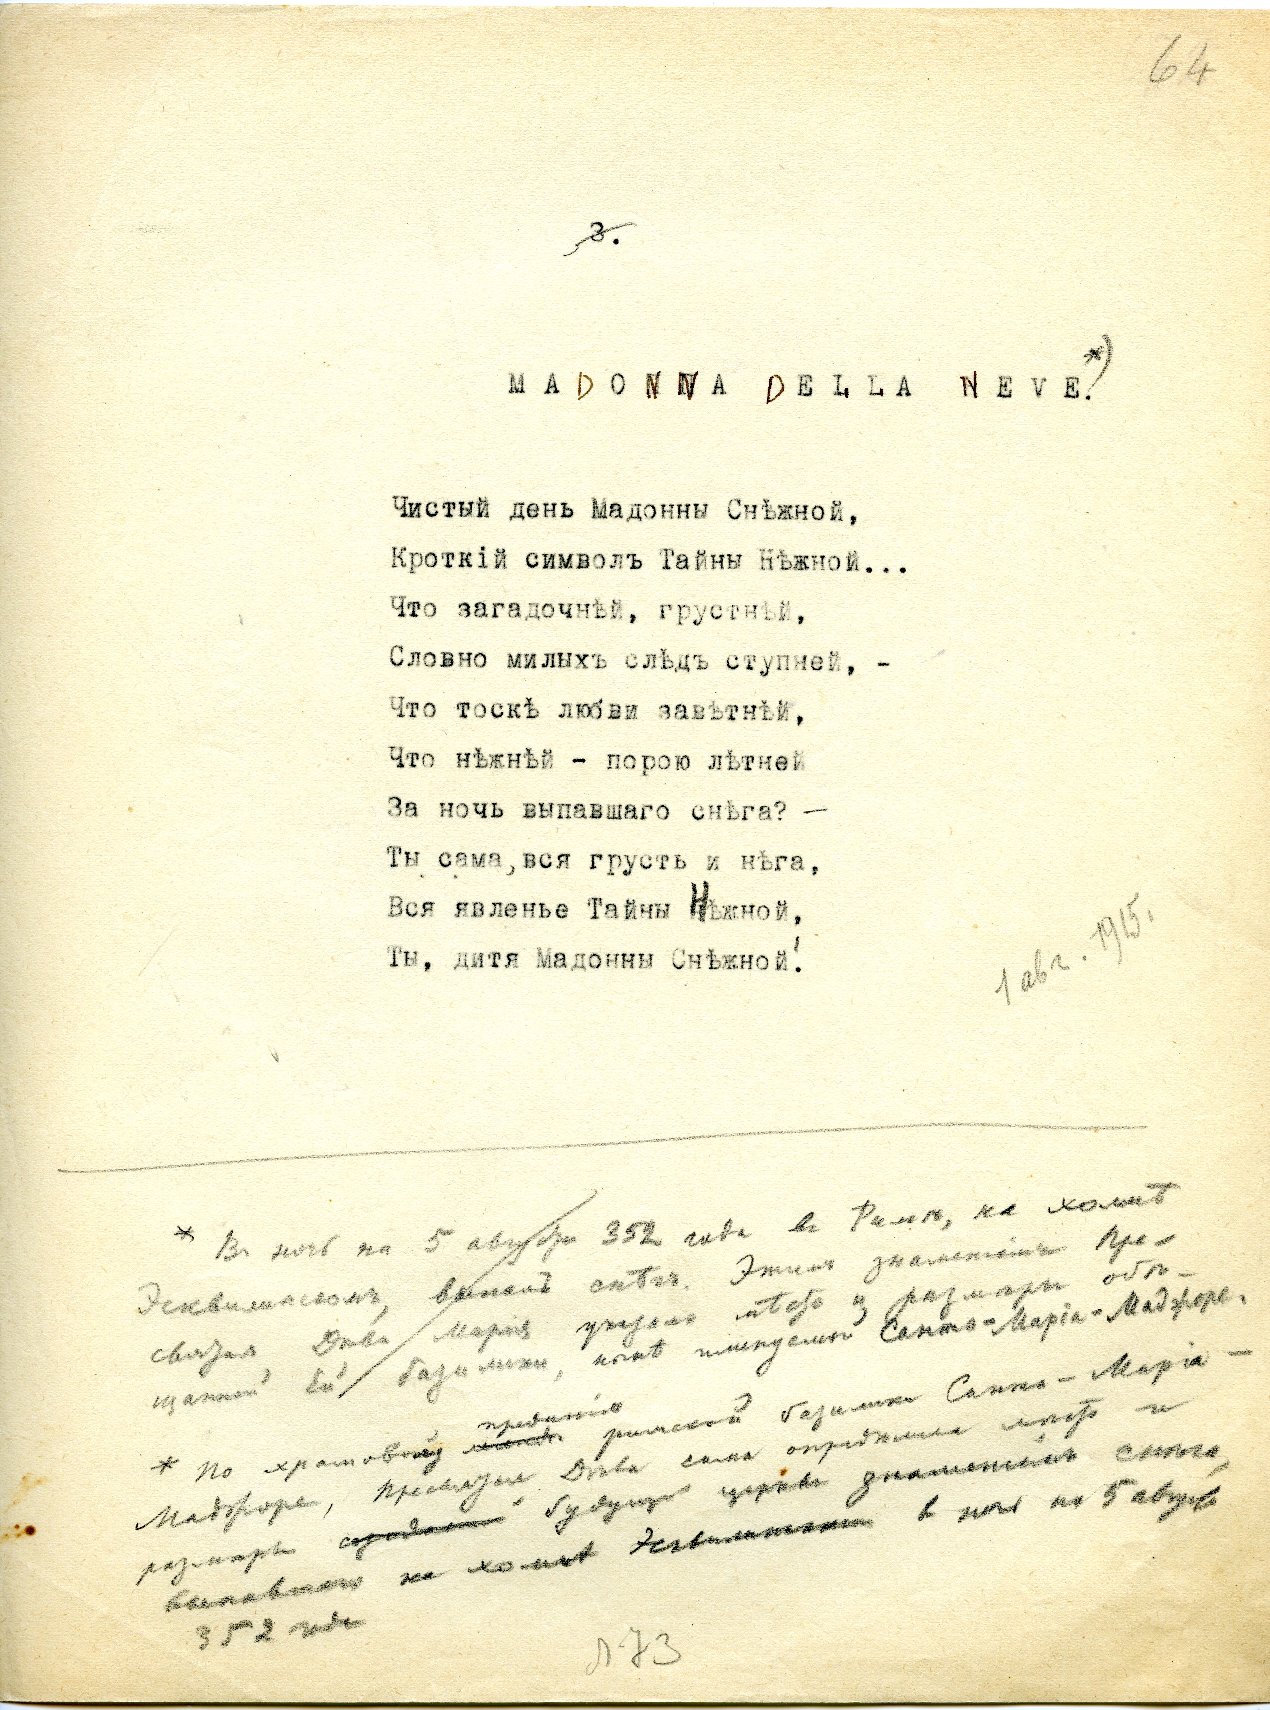 64
3.
MADONNA DELLA NEVE.*)
Чистый день Мадонны Снѣжной,
Кроткій символъ Тайны Нѣжной...
Что загадочнѣй, грустнѣй,
Словно милыхъ слѣдъ ступней, -
Что тоскѣ любви завѣтнѣй,
Что нѣжнѣй - порою лѣтней
За ночь выпавшаго снѣга? —
Ты сама, вся грусть и нѣга,
Вся явленье Тайны Нѣжной,
Ты, дитя Мадонны Снѣжной!
1 авг. 1915.
* Въ ночь на 5 августа 352 года въ Римѣ, на холмѣ
Эсквилинскомъ, выпалъ снѣгъ. Этимъ знаменіемъ Пре-
святая Дѣва Марія указала мѣсто и размѣры обѣ-
щанной Ей базилики, нынѣ именуемой Санта-Марія-Маджоре.
преданію
* По храмовому римской базилики Санта-Марія-
Маджоре, Пресвятая Дѣва сама опредѣлила мѣсто и
размѣры создаваемой будущей церкви знаменіемъ снѣга,
выпавшаго на холмѣ Эсквилинскомъ в ночь на 5 августа
352 года
л 73